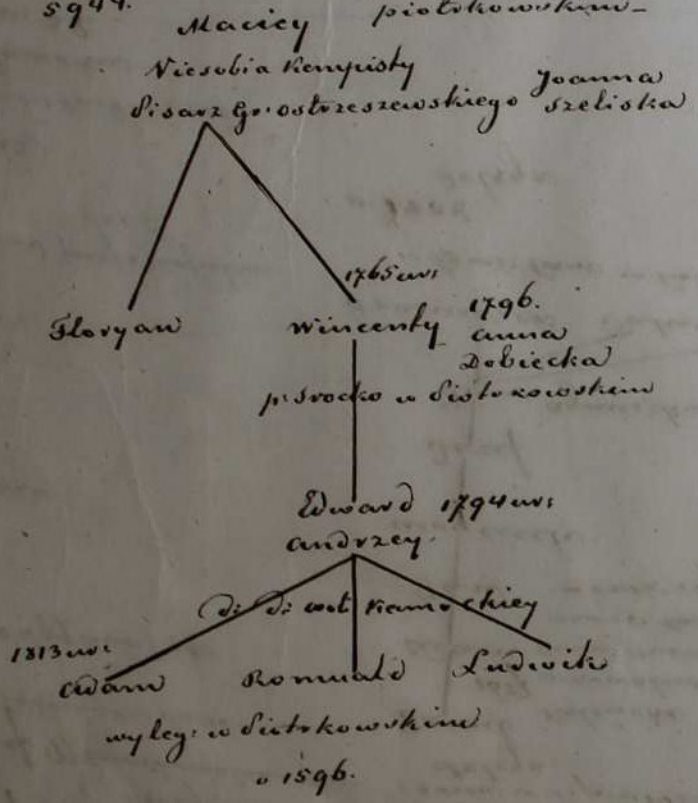 5944.
Maciey piotrkowskim
Niesobia Kempisty
Joanna
Pisarz Gr: ostrzeszewskiego Szeliska
1765 ur:
Floryan Wincenty 1796.
Anna
Dobiecka
p: Srocko w Piotrkowskim
Edward 1794 ur:
Andrzey.
D: D: wsi
1813 ur:
Adam Romuald Ludwik
wyleg: w Piotrkowskim
1596.